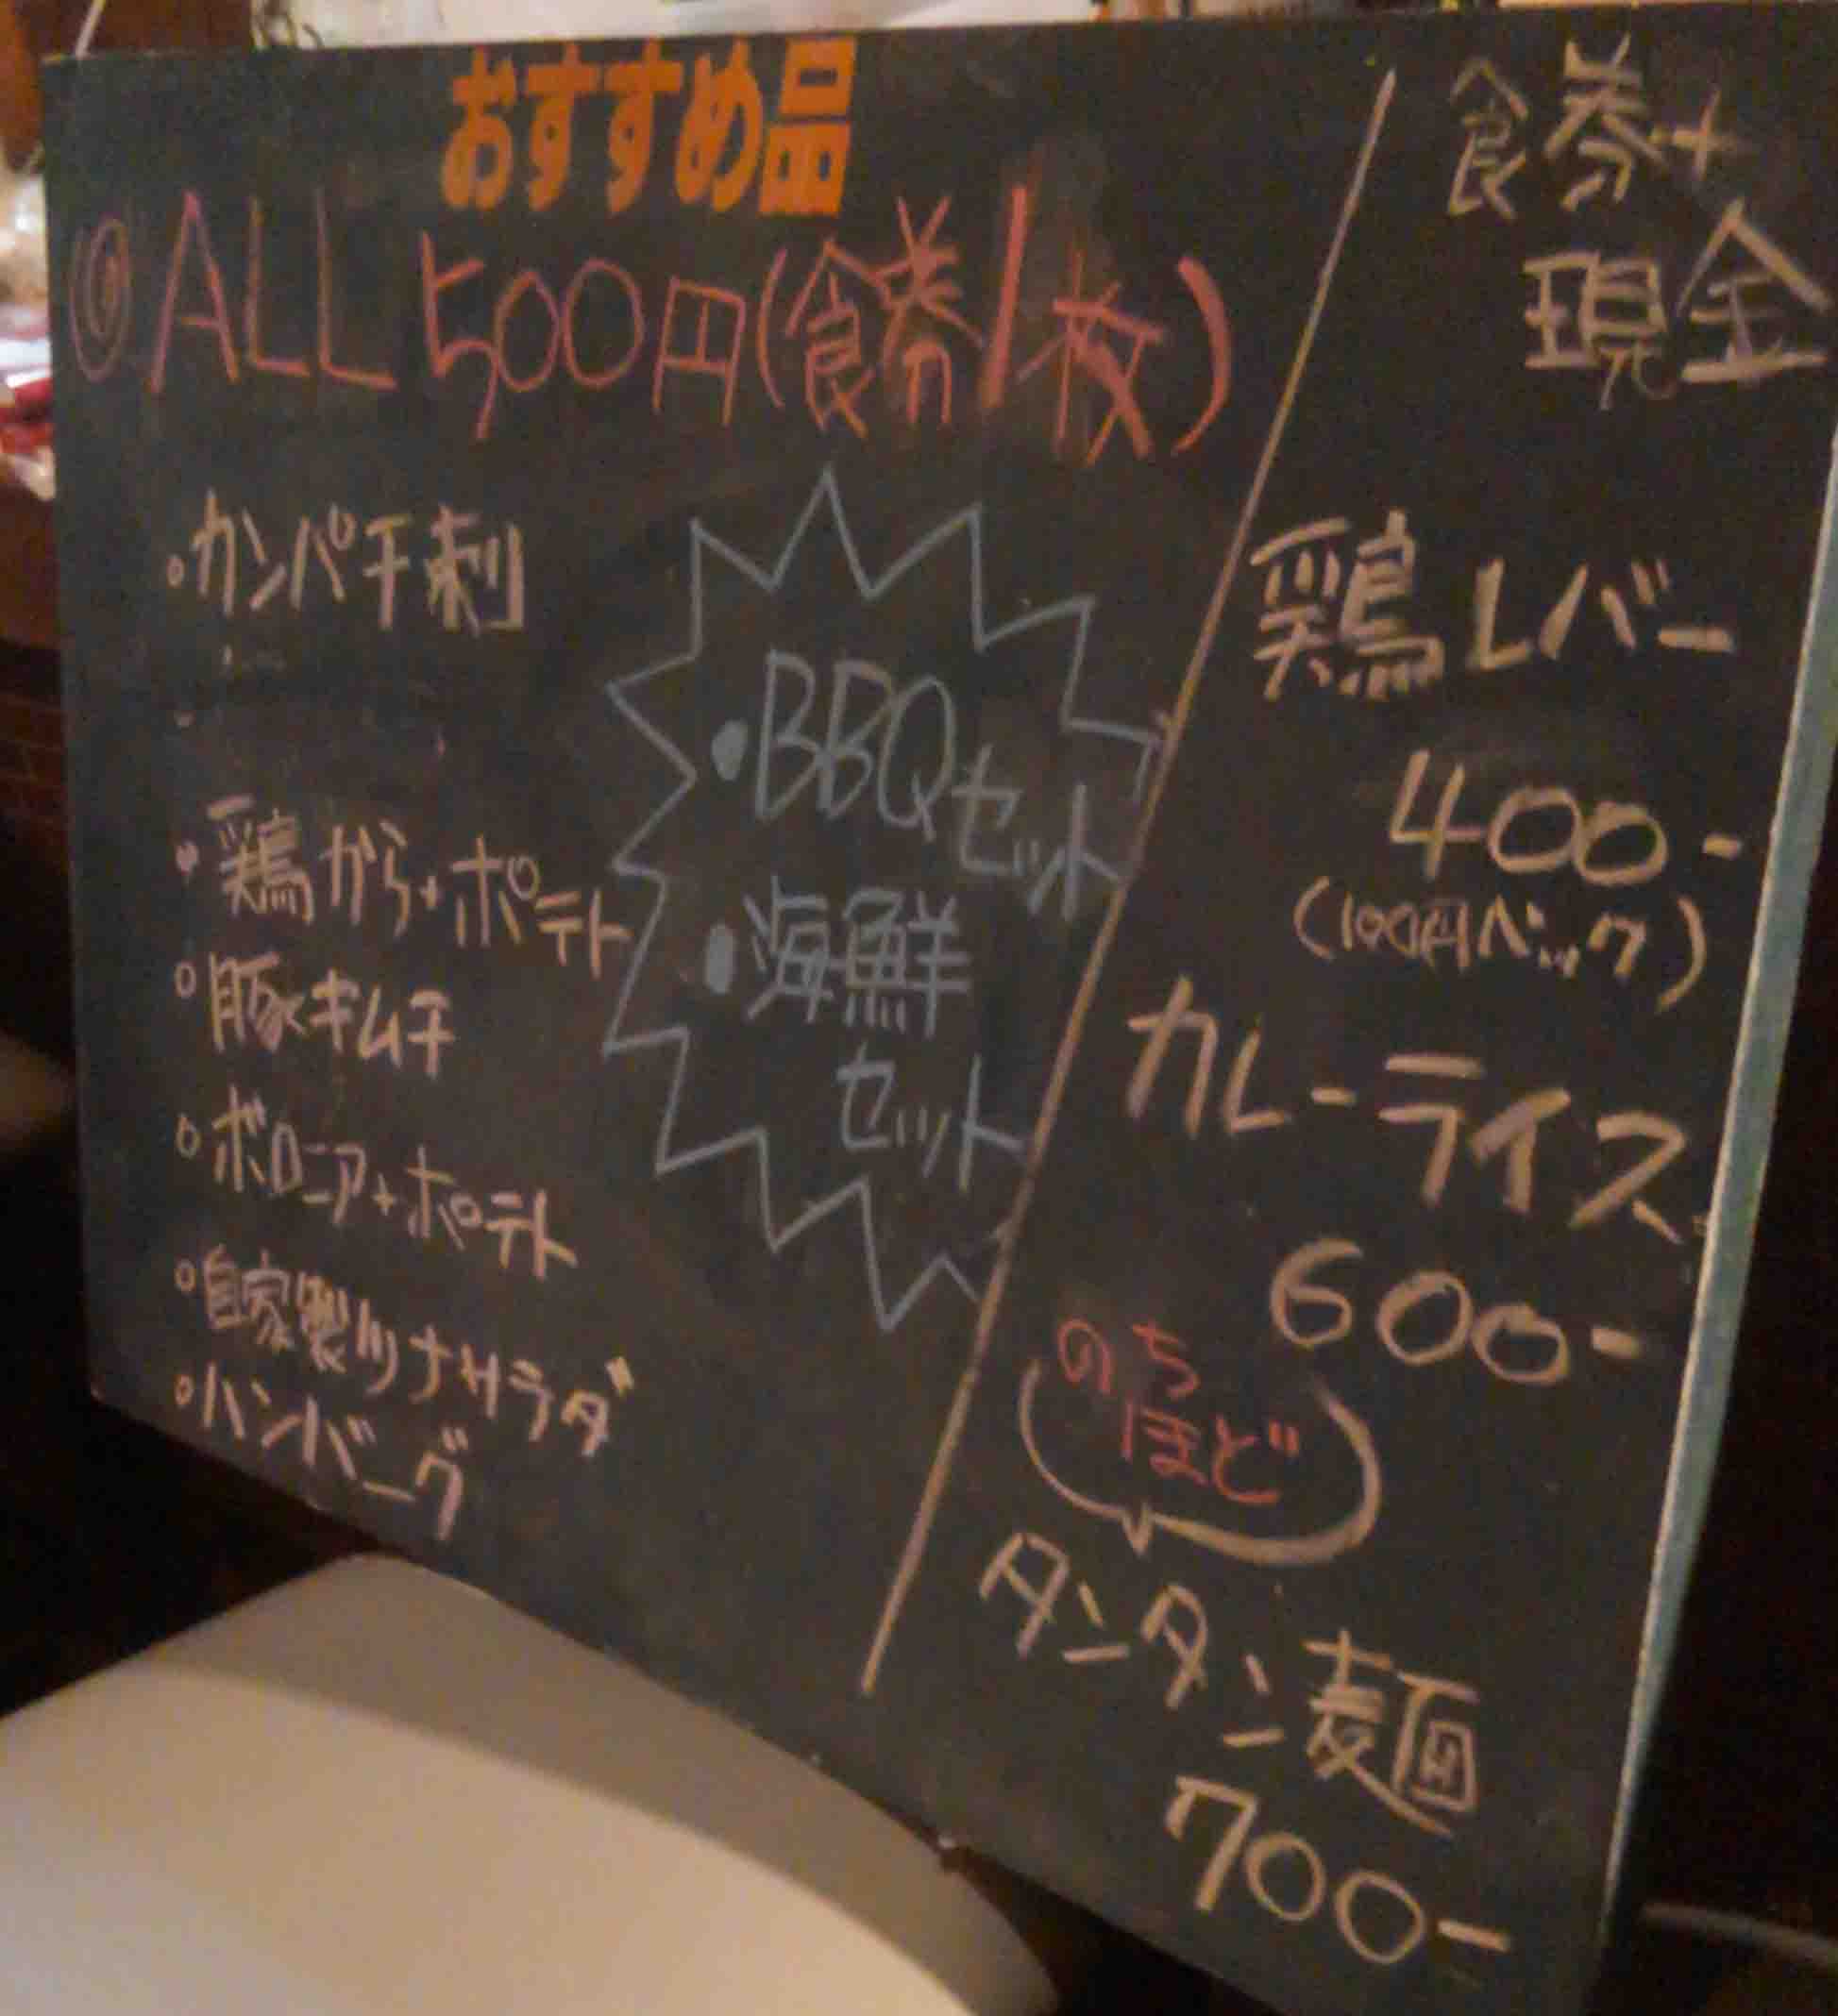 おすすめ品
◎ALL 500円(食券1枚)
・カンパチ刺
・鶏から+ポテト
・豚キムチ
・ボロニア+ポテト
・自家製ツナサラダ
・ハンバーグ
・BBQセット
・海鮮
セット
食券+
現金
鶏レバー
400-
(100円バック)
カレーライス
600-
のち
ほど
タンタン麺
700-